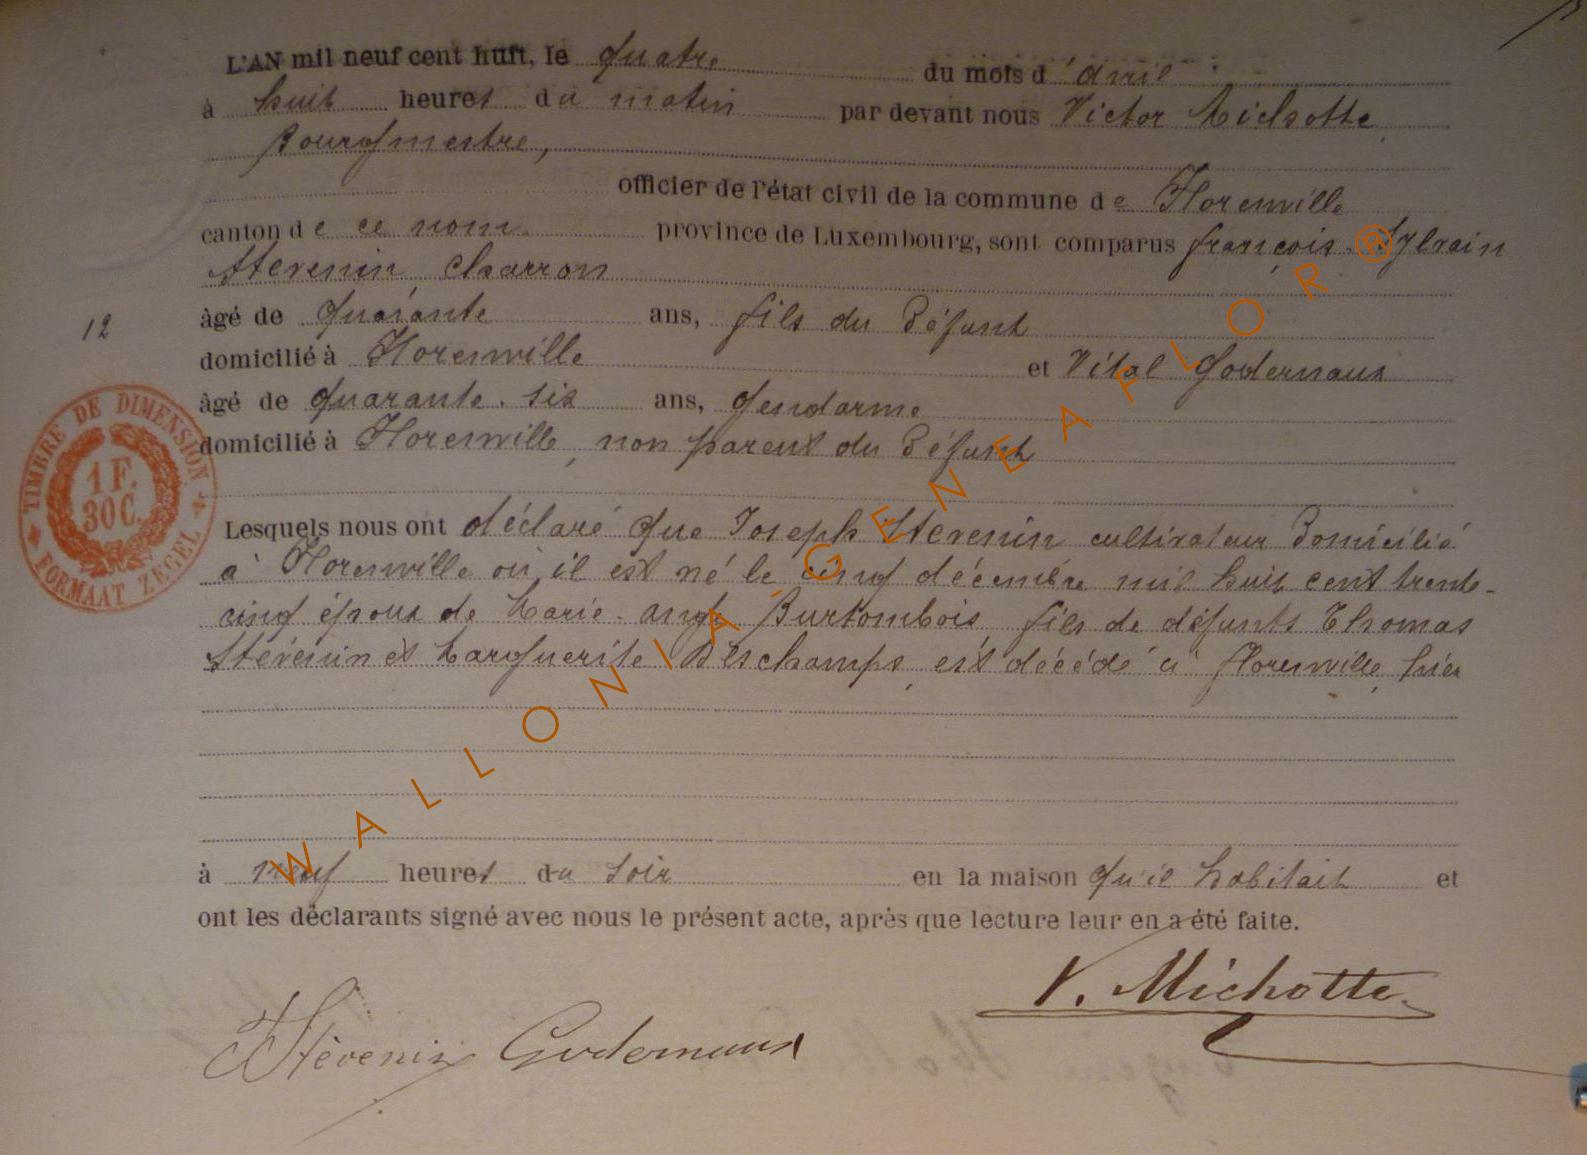 L'AN mil neuf cent huit, le quatre du mois d'avril
à huit heures du matin par devant nous Victor Michotte
Bourgmestre,
officier de l'état civil de la commune de Florenville
canton de ce nom province de Luxembourg, sont comparus françois. Sylvain
Stevenin, charron
12
âgé de quarante ans, fils du défunt
domicilié à Florenville et Vital Godernaux
âgé de quarante. six ans, gendarme
domicilié à Florenville, non parent du défunt
TIMBRE DE DIMENSION
1 F.
30 C.
FORMAAT ZEGEL
Lesquels nous ont déclaré que Joseph Stevenin cultivateur domicilié
à Florenville où il est né le cinq décembre mil huit cent trente-
cinq époux de Marie. ange Burtombois fils de défunts Thomas
Stévenin et Marguerite Deschamps, est décédé à florenville, hier
à neuf heures du soir en la maison qu'il habitait et
ont les déclarants signé avec nous le présent acte, après que lecture leur en a été faite.
V. Michotte
Stévenin Godernaux
WALLONIA-GENEAFLOR®